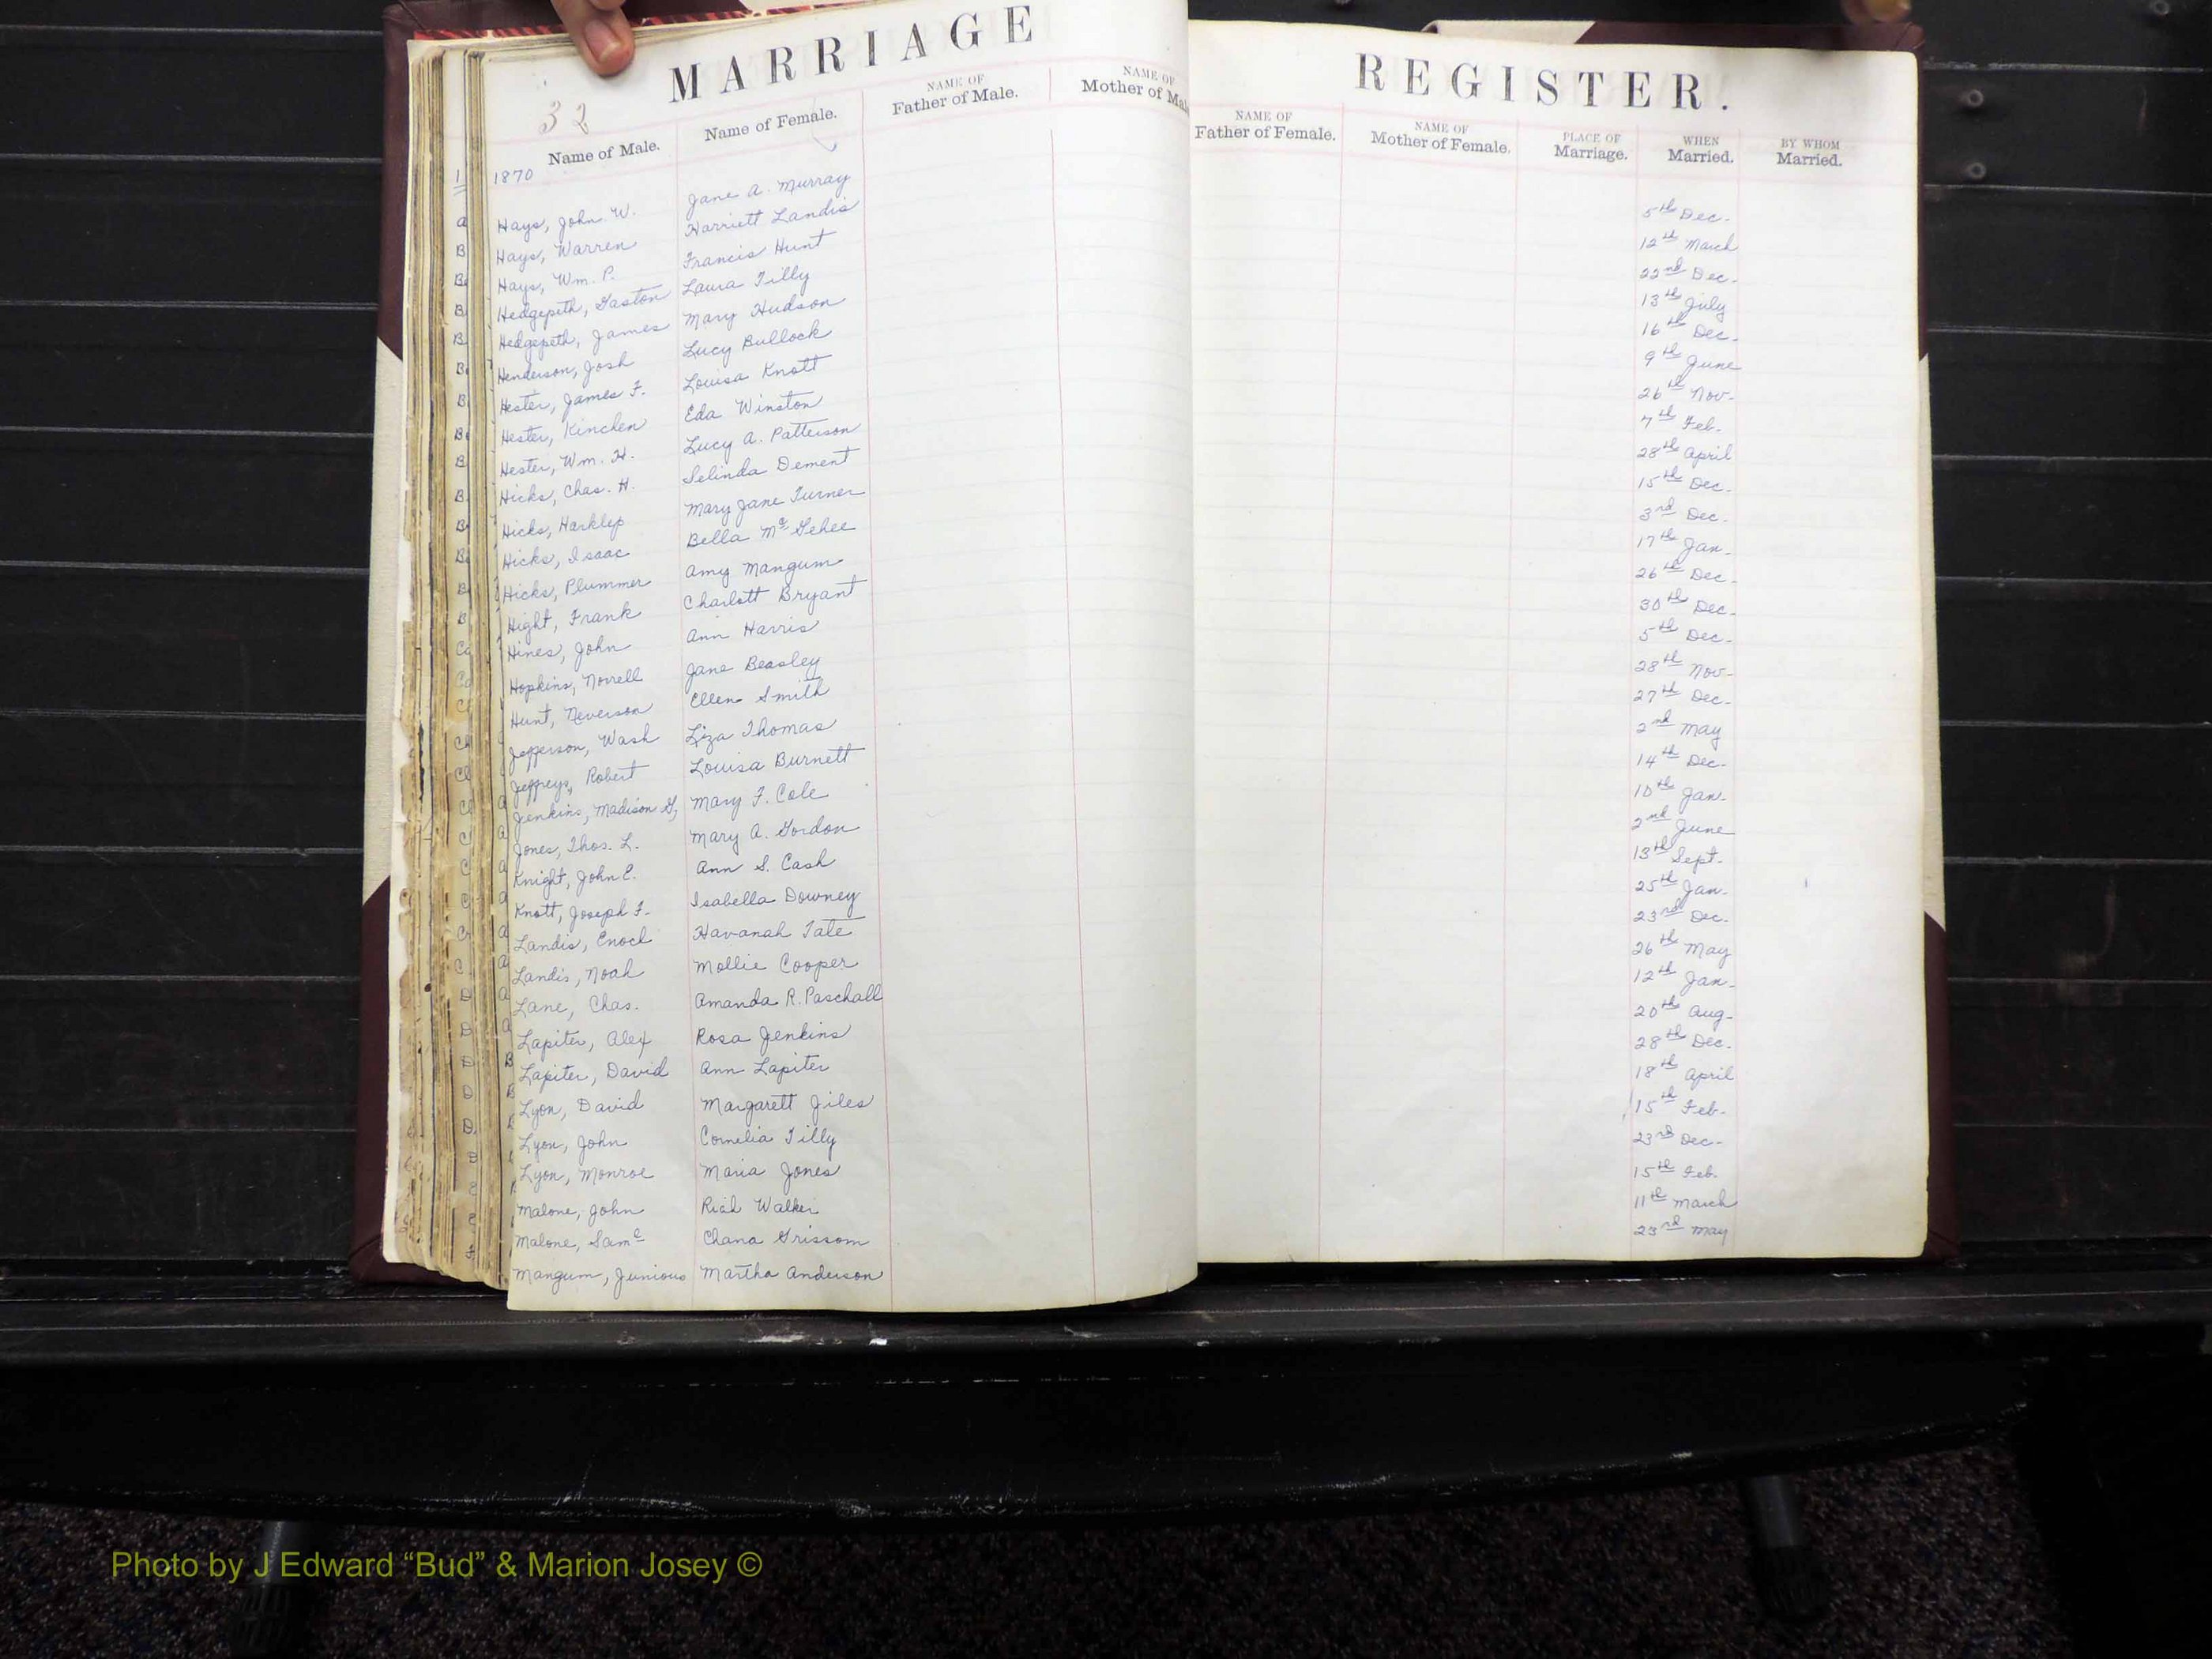 MARRIAGE REGISTER.
32
Name of Male. Name of Female. NAME OF Father of Male. NAME OF Mother of Male NAME OF Father of Female. NAME OF Mother of Female. PLACE OF Marriage. WHEN Married. BY WHOM Married.
1870
Hays, John W. Jane A. Murray 5th Dec.
Hays, Warren Harriett Landis 12th March
Hays, Wm. P. Francis Hunt 22nd Dec.
Hedgepeth, Gaston Laura Tilly 13th July
Hedgepeth, James Mary Hudson 16th Dec.
Henderson, Josh Lucy Bullock 9th June
Hester, James F. Louisa Knott 26th Nov.
Hester, Kinchen Eda Winston 7th Feb.
Hester, Wm. H. Lucy A. Patterson 28th April
Hicks, Chas. H. Selinda Dement 15th Dec.
Hicks, Mary Jane Turner 3rd Dec.
Hicks, Isaac Bella McGehee 17th Jan.
Hicks, Plummer Amy Mangum 26th Dec.
Hight, Frank Charlott Bryant 30th Dec.
Hines, John Ann Harris 5th Dec.
Hopkins, Norrell Jane Beasley 28th Nov.
Hunt, Neverson Ellen Smith 27th Dec.
Jefferson, Wash Liza Thomas 2nd May
Jeffreys, Robert Louisa Burnett 14th Dec.
Jenkins, Madison G, Mary F. Cole 10th Jan.
Jones, Thos. L. Mary A. Gordon 2nd June
Knight, John E. Ann S. Cash 13th Sept.
Knott, Joseph F. Isabella Downey 25th Jan.
Landis, Enoch Havanah Tate 23rd Dec.
Landis, Noah Mollie Cooper 26th May
Lane, Chas. Amanda R. Paschall 12th Jan.
Lapiter, Alex Rosa Jenkins 20th Aug.
Lapiter, David Ann Lapiter 28th Dec.
Lyon, David Margarett Jiles 18th April
Lyon, John Cornelia Tilly 15th Feb.
Lyon, Monroe Maria Jones 23rd Dec.
Malone, John Riah Walker 15th Feb.
Malone, Saml Chana Grissom 11th March
Mangum, Junious Martha Anderson 23rd May
Photo by J Edward “Bud” & Marion Josey ©